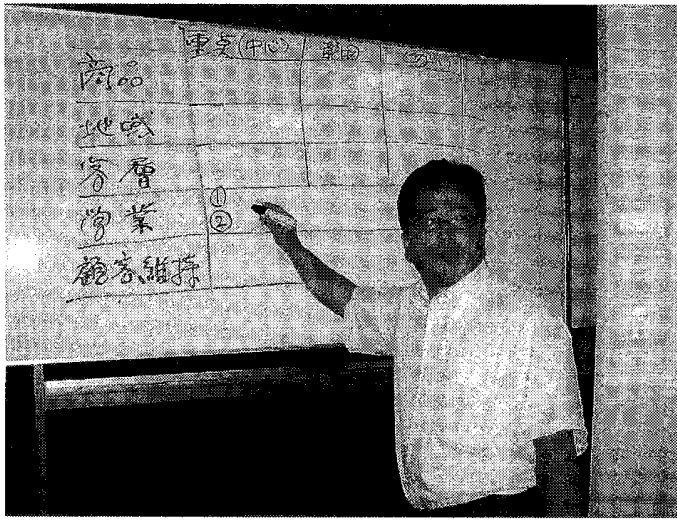 重点(中心) 範囲
商品
地域
客層
営業 ①
②
顧客維持